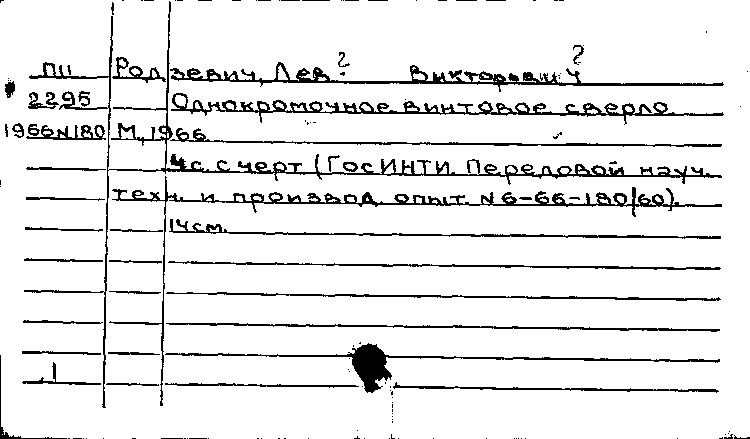 ?            ?
ПII Родзевич, Лев Викторович
2295 Однокромочное винтовое сверло.
1966N180 М, 1966
4с. с черт (ГосИНТИ. Передовой науч.
техн. и производ. опыт. N 6-66-180/60).
14см.
1